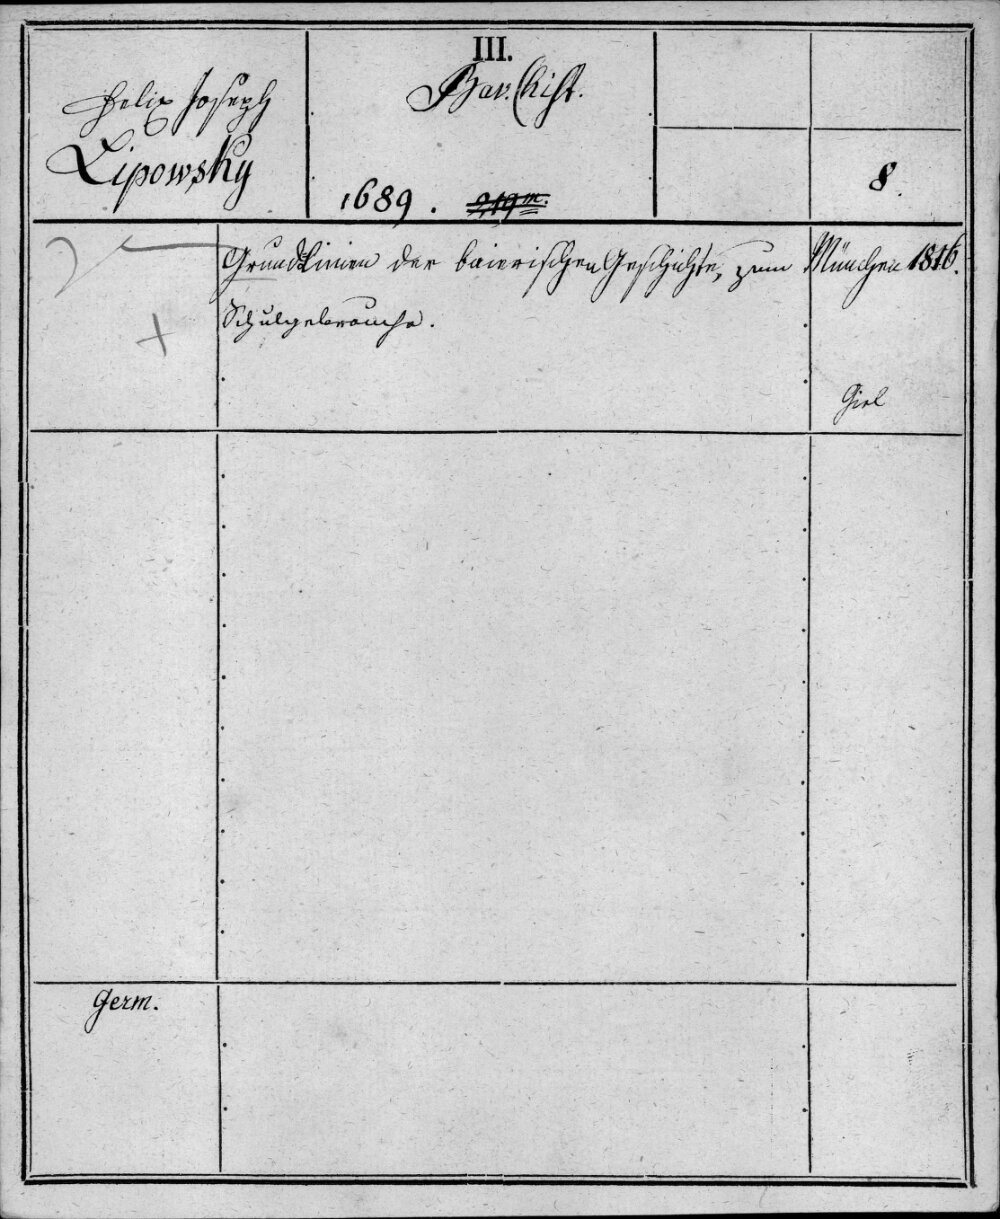 III.
Felix Joseph
Lipowsky
Bav. Hist.
8.
1689. 219m.
GrundLinien der baierischen Geschichte, zum
Schulgebrauche.
München 1816.
Giel
Germ.